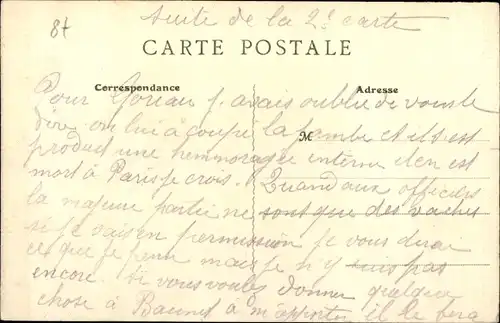 84
suite de la 2e carte
CARTE POSTALE
Correspondance
Adresse
M
Pour j'avais oublié de vous le
dire on lui à coupé la jambe et il s'est
produit une hemmoragee interne il en est
mort à Paris je crois. Quand aux officiers
la majeure partie ne sont que des vaches
si je vais en permission je vous dirai
ce que je pense mais je n'y suis pas
encore. Si vous voulez donner quelque
chose à à m'apporter il le fera